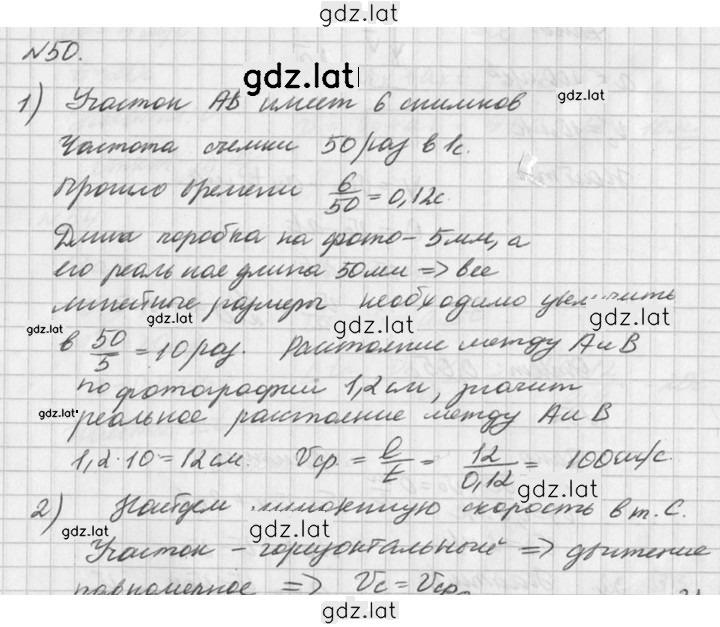 gdz.lat
№50.
gdz.lat
1) Участок АВ имеет 6 снимков
gdz.lat
Частота съемки 50 раз в 1с.
gdz.lat
Прошло времени 6/50 = 0,12с.
Длина коробка на фото - 5мм, а
его реальное длина 50мм => все
линейные размеры необходимо увеличить
gdz.lat gdz.lat gdz.lat
в 50/5 = 10 раз. Расстояние между А и В
по фотографии 1,2 см, значит
gdz.lat gdz.lat gdz.lat
реальное расстояние между А и В
1,2·10 = 12 см. Vср = l/t = 12/0,12 = 100см/с.
2) Найдем скорость в т. С.
gdz.lat gdz.lat gdz.lat
Участок - горизонтальный => движение
равномерное => Vс = Vср
gdz.lat